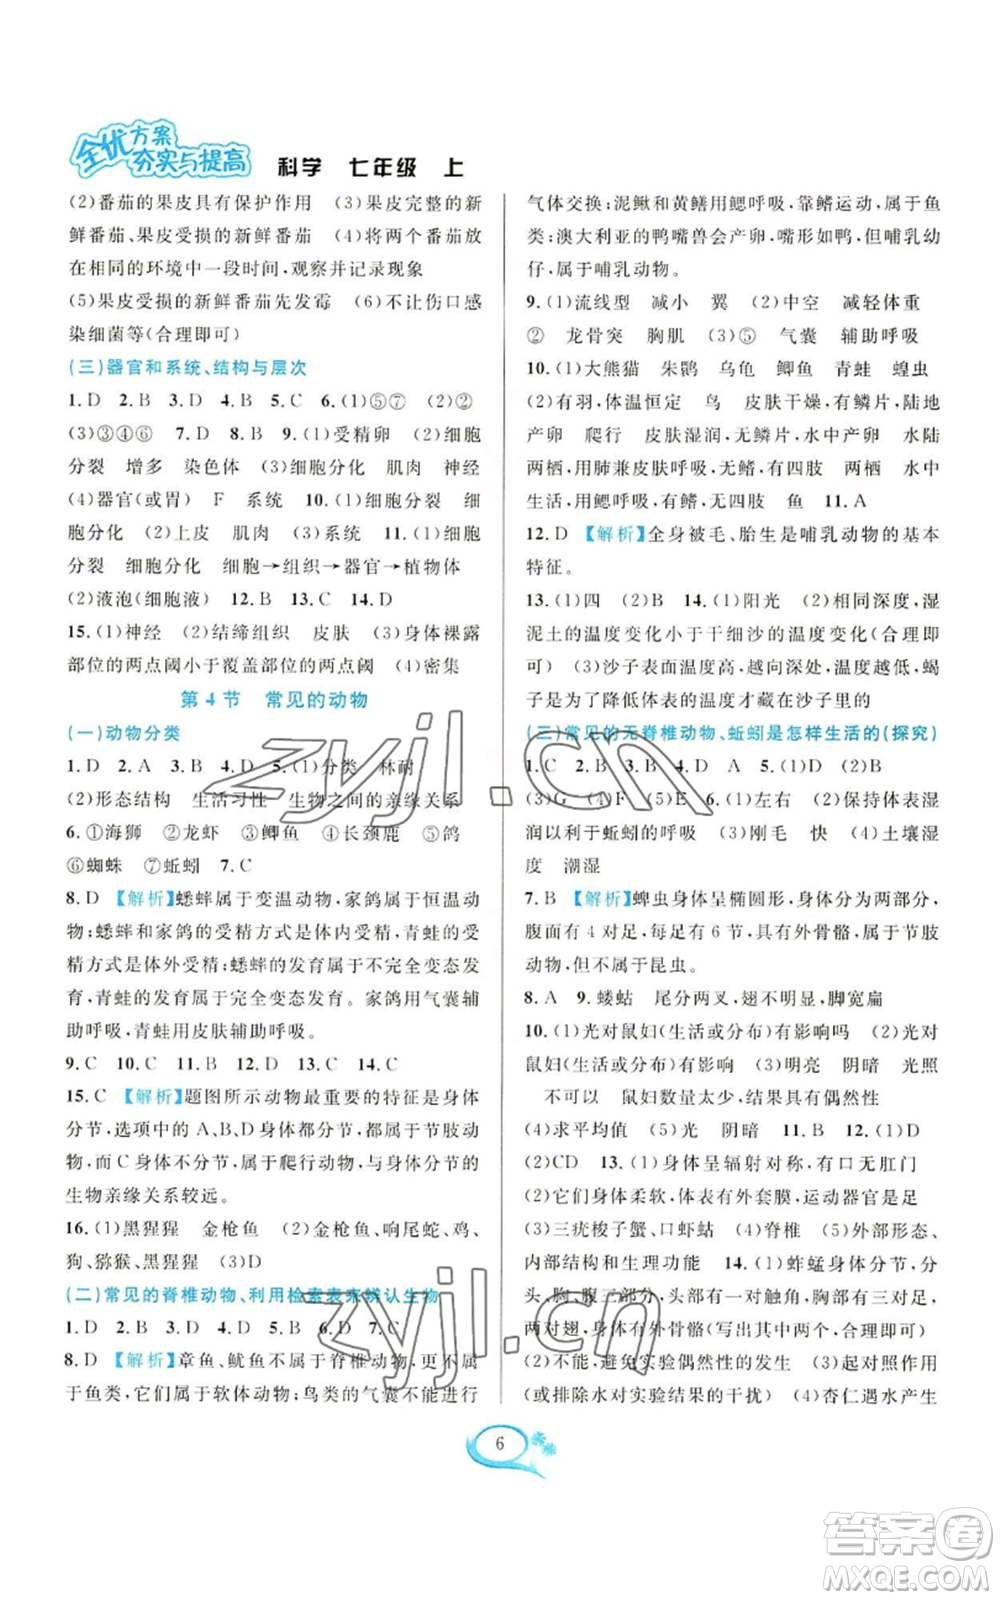 全优方案
夯实与提高
科学 七年级 上
(2)番茄的果皮具有保护作用 (3)果皮完整的新
鲜番茄、果皮受损的新鲜番茄 (4)将两个番茄放
在相同的环境中一段时间,观察并记录现象
(5)果皮受损的新鲜番茄先发霉 (6)不让伤口感
染细菌等(合理即可)
(三)器官和系统、结构与层次
1. D 2. B 3. D 4. B 5. C 6. (1)⑤⑦ (2)②
(3)③④⑥ 7. D 8. D 9. (1)受精卵 (2)细胞
分裂 增多 染色体 (3)细胞分化 肌肉 神经
(4)器官(或胃) F 系统 10. (1)细胞分裂 细
胞分化 (2)上皮 肌肉 (3)系统 11. (1)细胞分
裂 细胞分化 细胞→组织→器官→植物体
(2)液泡(细胞液) 12. B 13. C 14. D
15. (1)神经 (2)结缔组织 皮肤 (3)身体裸露
部位的两点阈小于覆盖部位的两点阈 (4)密集
第 4 节 常见的动物
(一)动物分类
1. D 2. A 3. B 4. D 5. (1)分类 林耐
(2)形态结构 生活习性 生物之间的亲缘关系
6. ①海狮 ②龙虾 ③鲫鱼 ④长颈鹿 ⑤鸽
⑥蜘蛛 ⑦蚯蚓 7. C
8. D 【解析】蟋蟀属于变温动物,家鸽属于恒温动
物;蟋蟀和家鸽的受精方式是体内受精,青蛙的受
精方式是体外受精;蟋蟀的发育属于不完全变态发
育,青蛙的发育属于完全变态发育。家鸽用气囊辅
助呼吸,青蛙用皮肤辅助呼吸。
9. C 10. C 11. B 12. C 13. C 14. D
15. C 【解析】题图所示动物最重要的特征是身体
分节,选项中的 A、B、D 身体都分节,都属于节肢动
物,而 C 身体不分节,属于爬行动物,与题图所示的
生物亲缘关系较远。
16. (1)黑猩猩 金枪鱼 (2)金枪鱼、响尾蛇、鸡、
狗、猕猴、黑猩猩 (3)D
(二)常见的脊椎动物、利用检索表来辨认生物
1. D 2. B 3. D 4. D 5. D 6. D 7. C
8. D 【解析】章鱼、鱿鱼不属于脊椎动物,更不属
于鱼类,它们属于软体动物;鸟类的气囊不能进行
气体交换;泥鳅和黄鳝用鳃呼吸,靠鳍运动,属于鱼
类;澳大利亚的鸭嘴兽会产卵,嘴形如鸭,但哺乳幼
仔,属于哺乳动物。
9. (1)流线型 减小 翼 (2)中空 减轻体重
② 龙骨突 胸肌 (3)⑤ 气囊 辅助呼吸
10. (1)大熊猫 朱鹮 乌龟 鲫鱼 青蛙 蝗虫
(2)有羽,体温恒定 鸟 皮肤干燥,有鳞片,陆地
产卵 爬行 皮肤湿润,无鳞片,水中产卵 水陆
两栖,用肺兼皮肤呼吸,无鳍,有四肢 两栖 水中
生活,用鳃呼吸,有鳍,无四肢 鱼 11. A
12. D 【解析】全身被毛、胎生是哺乳动物的基本
特征。
13. (1)四 (2)B 14. (1)阳光 (2)相同深度,湿
泥土的温度变化小于干细沙的温度变化(合理即
可) (3)沙子表面温度高,越向深处温度越低,蝎
子是为了降低体表的温度才藏在沙子里的
(三)常见的无脊椎动物、蚯蚓是怎样生活的(探究)
1. C 2. B 3. B 4. D A 5. (1)D (2)B
(3)G (4)F (5)E 6. (1)左右 (2)保持体表湿
润以利于蚯蚓的呼吸 (3)刚毛 快 (4)土壤湿
度 潮湿
7. B 【解析】蜱虫身体呈椭圆形,身体分为两部分,
腹面有 4 对足,每足有 6 节,具有外骨骼,属于节肢
动物,但不属于昆虫。
8. A 9. 蝼蛄 尾分两叉,翅不明显,脚宽扁
10. (1)光对鼠妇(生活或分布)有影响吗 (2)光对
鼠妇(生活或分布)有影响 (3)明亮 阴暗 光照
不可以 鼠妇数量太少,结果具有偶然性
(4)求平均值 (5)光 阴暗 11. B 12. (1)D
(2)CD 13. (1)身体呈辐射对称,有口无肛门
(2)它们身体柔软,体表有外套膜,运动器官是足
(3)三疣梭子蟹、口虾蛄 (4)脊椎 (5)外部形态、
内部结构和生理功能 14. (1)蚱蜢身体分节,分
头、胸、腹三部分,头部有一对触角,胸部有三对足、
两对翅,身体有外骨骼(写出其中两条,合理即可)
(2)不能,避免实验偶然性的发生 (3)起对照作用
(或排除水对实验结果的干扰) (4)杏仁遇水产生
6
zyjl.cn
zyjl.cn
答案圈
MXQE.COM